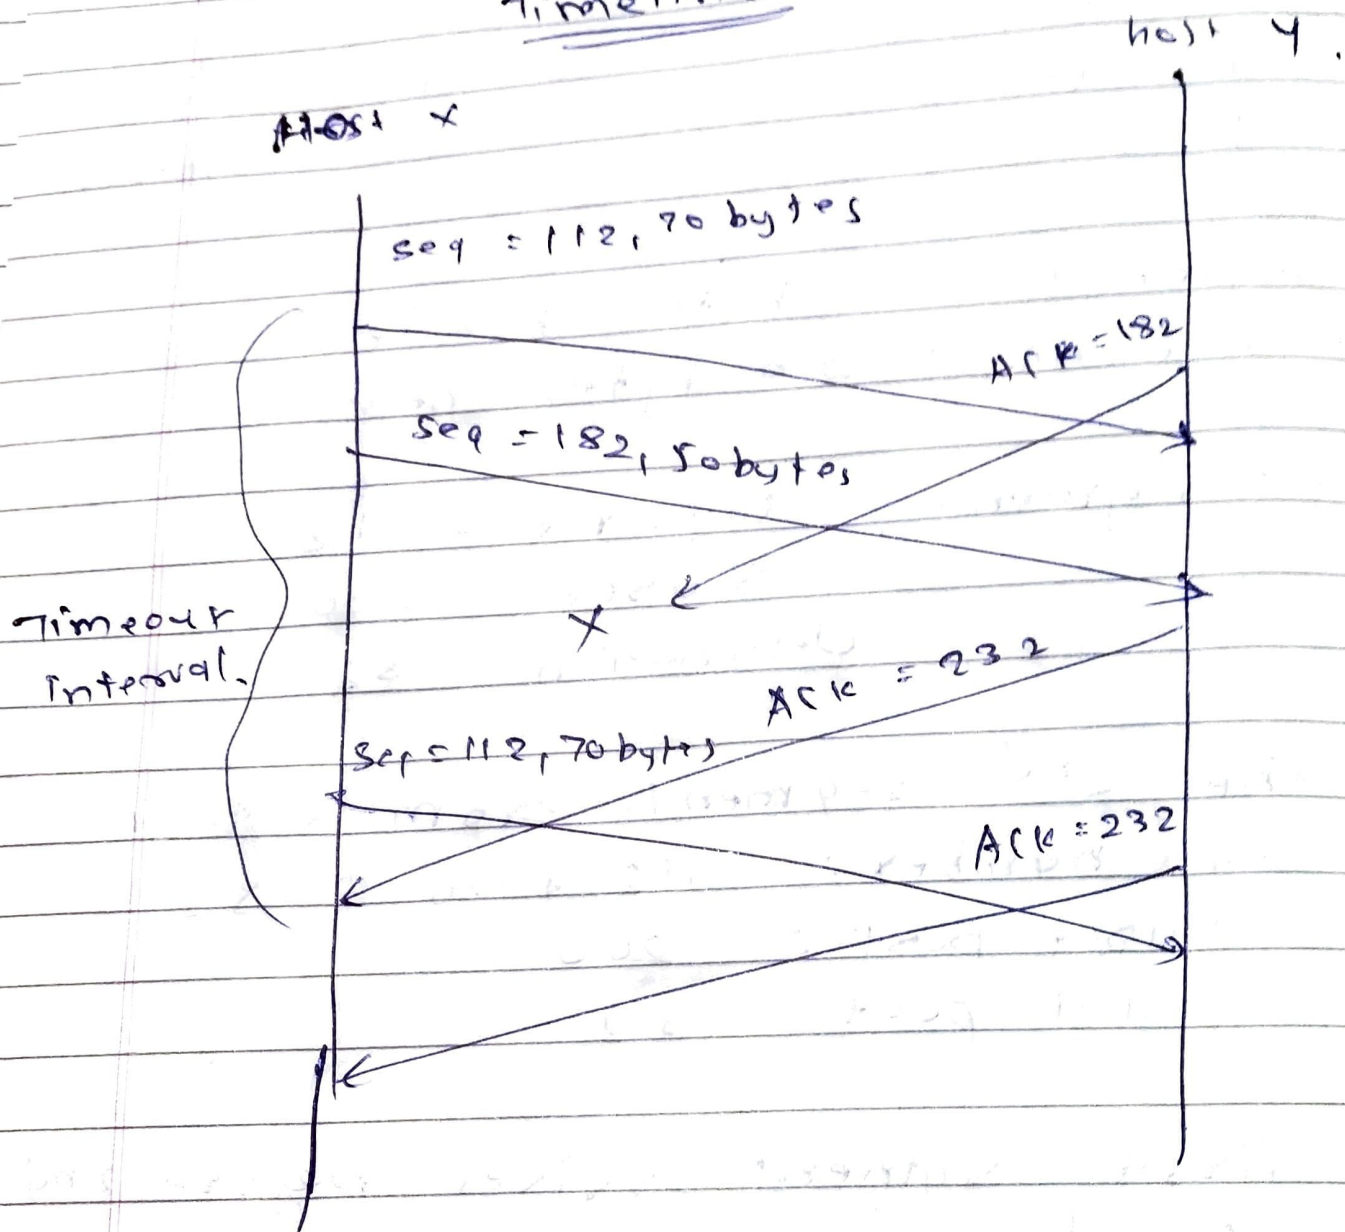 host y.
Host x
seq = 112, 70 bytes
Ack = 182
seq = 182, 50 bytes
x
Timeout
interval.
Ack = 232
Seq = 112, 70 bytes
Ack = 232